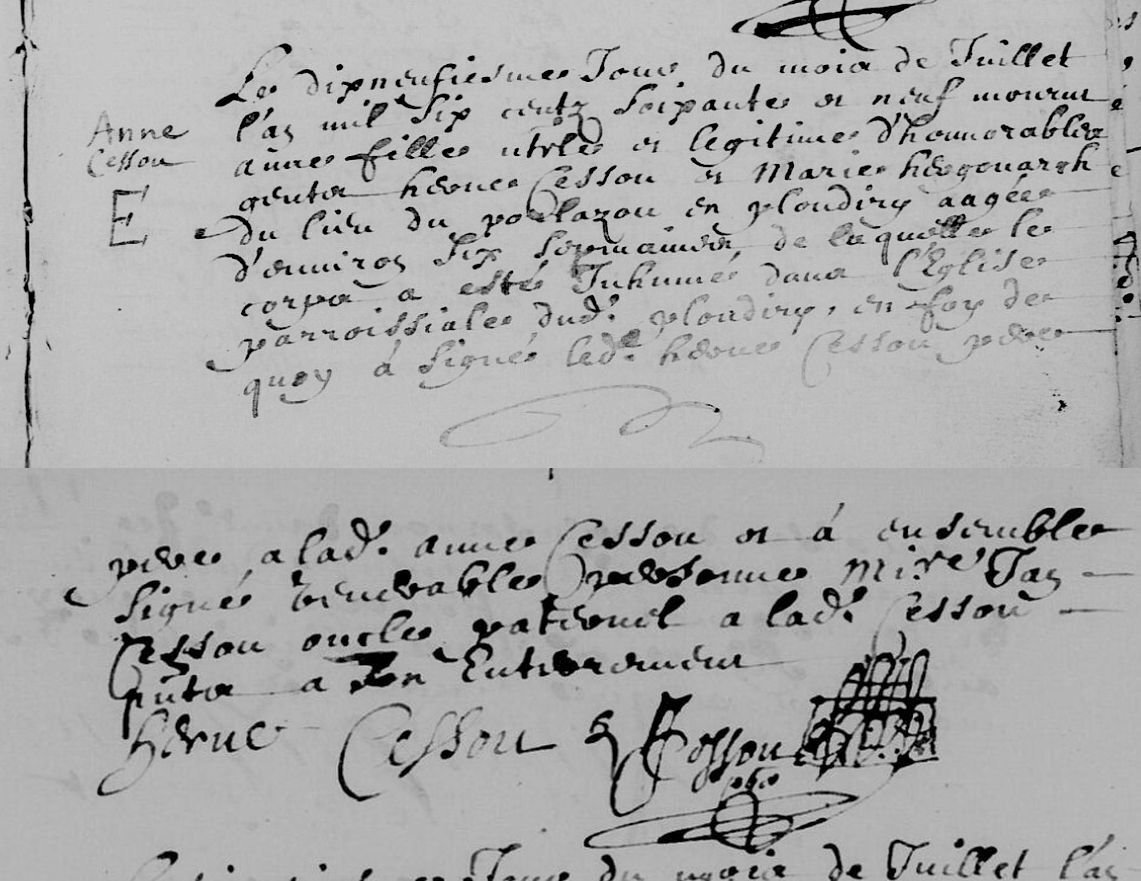 Le dixneufiesme Jour du mois de Juillet
Anne Cesson
l'an mil six centz soixante et neuf mourut
anne fille utrle et legitime d'honnorables
E
gents herve Cesson et Marie hergouarch
du lieu du porlazou en ploudiry aagée
d'environ six sepmaines de laquelle le
corps a esté Inhumé dans l'Eglise
parroissiale dud. ploudiry, en foy de
quoy á signé led. hervé Cesson pere
pere a lad. anne Cesson et á ensemble
signé venerable personne Mire Jan
Cesson oncle paternel a lad. Cesson
pnts a son Enterrement
herve Cesson Cesson
Jour du mois de Juillet l'an